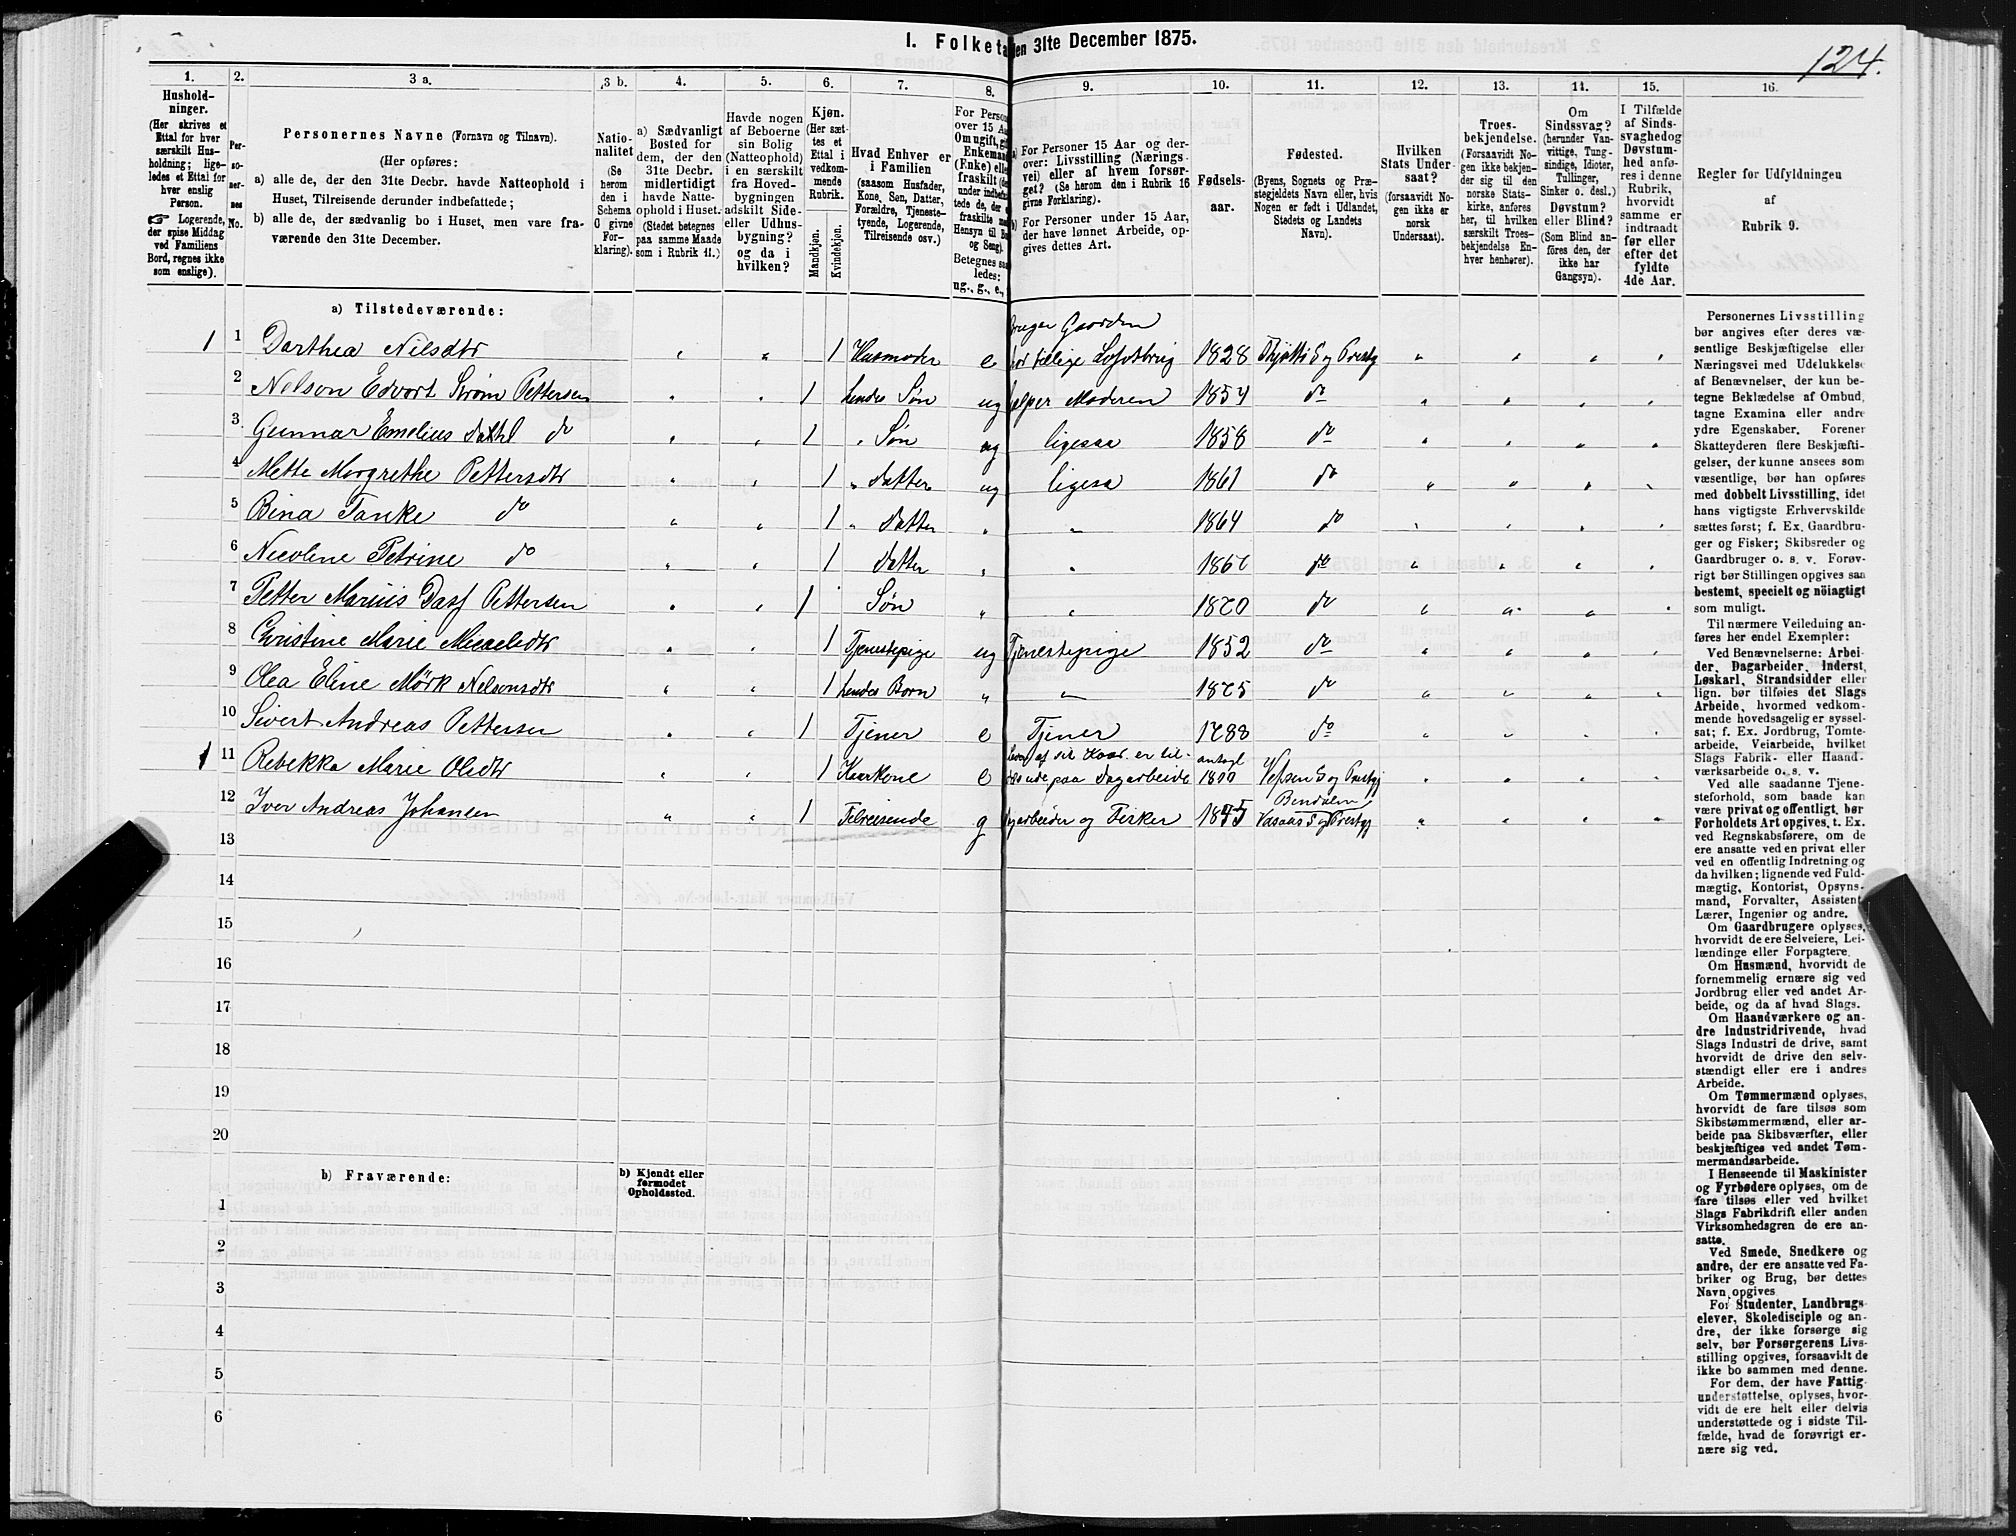 I. Folketa den 31te December 1875.
124.
1. 2. 3 a. 3 b. 4. 5. 6. 7. 8. 9. 10. 11. 12. 13. 14. 15. 16.
Hushold-
ninger.
(Her skrives et
Ettal for hver
særskilt Hus-
holdning; lige-
ledes et Ettal for
hver enslig
Person.
☞ Logerende,
der spise Middag
ved Familiens
Bord, regnes ikke
som enslige).
Per-
so-
ner-
nes
No.
Personernes Navne (Fornavn og Tilnavn).
(Her opføres:
a) alle de, der den 31te Decbr. havde Natteophold i
Huset, Tilreisende derunder indbefattede;
b) alle de, der sædvanlig bo i Huset, men vare fra-
værende den 31te December.
Natio-
nalitet
(Se
herom
den i
Schema
O givne
For-
klaring).
a) Sædvanligt
Bosted for
dem, der den
31te Decbr.
midlertidigt
havde Natte-
ophold i Huset.
(Stedet betegnes
paa samme Maade
som i Rubrik 11.)
Havde nogen
af Beboerne
sin Bolig
(Natteophold)
i en særskilt
fra Hoved-
bygningen
adskilt Side-
eller Udhus-
bygning?
og da i
hvilken?
Kjøn.
(Her sæt-
tes et
Ettal i
vedkom-
mende
Rubrik.
Mandkjøn.
Kvindekjøn.
Hvad Enhver er
i Familien
(saasom Husfader,
Kone, Søn, Datter,
Forældre, Tjeneste-
tyende, Logerende,
Tilreisende osv.)
For Person
over 15 Aa
Om ugift, gif
Enkemand
(Enke) elle
fraskilt
under indbefat
tede de, der e
fraskilte m
Hensyn til Bo
og Seng).
Betegnes saa
ledes:
ug., g., e.,
a) For Personer 15 Aar og der-
over: Livsstilling (Nærings-
vei) eller af hvem forsør-
get? (Se herom den i Rubrik 16
givne Forklaring).
b) For Personer under 15 Aar,
der have lønnet Arbeide, op-
gives dettes Art.
Fødsels-
aar.
Fødested.
(Byens, Sognets og Præ-
stegjeldets Navn eller, hvis
Nogen er født i Udlandet,
Stedets og Landets
Navn).
Hvilken
Stats Under-
saat?
(forsaavidt No-
gen ikke er
norsk
Undersaat).
Troes-
bekjendelse.
(Forsaavidt No-
gen ikke bekjen-
der sig til den
norske Stats-
kirke, anføres
her, til hvilken
særskilt Troes-
bekjendelse En-
hver henhører).
Om
Sindssvag?
(herunder Van-
vittige, Tung-
sindige, Idioter,
Tullinger,
Sinker o. desl.)
Døvstum?
eller Blind?
(Som Blind an-
føres den, der
ikke har
Gangsyn).
I Tilfælde
af Sinds-
svaghedog
Døvstum-
hed anfø-
res i denne
Rubrik,
hvorvidt
samme er
indtraadt
før eller
efter det
fyldte
4de Aar.
Regler for Udfyldningen
af
Rubrik 9.
a) Tilstedeværende:
bruger Gaarden
1 1 Dorthea Nilsdtr " " 1 Husmoder e har tillige Lofotbrug 1828 Thjøtti S og Prestg " " " "
2 Nelson Edvort Strøm Pettersen " " 1 hendes Søn ug hjelper Moderen 1854 do " " " "
3 Gunnar Emelius Dahl do " " 1 " Søn ug ligesaa 1858 do " " " "
4 Mette Margrethe Pettersdtr " " 1 " datter ug ligesa 1861 do " " " "
5 Bina Tanke do " " 1 " datter " " 1864 do " " " "
6 Nicoline Petrine do " " 1 datter " " 1867 do " " " "
7 Petter Marius Dass Pettersen " " 1 Søn " " 1870 do " " " "
8 Christine Marie Micaelsdtr " " 1 Tjenestepige ug Tjenestepige 1852 do " " " "
9 Olea Eline Mørk Nelsonsdtr " " 1 hendes Barn " " 1875 do " " " "
10 Sivert Andreas Pettersen " " 1 Tjener e Tjener 1788 do " " " "
1 11 Rebekka Marie Olsdtr " " 1 Kaarkone e lever af sit Kaar. er til- dels ude paa Dagarbeide antagl 1800 Vefsen S og Prestgj " " " "
12 Iver Andreas Johansen " " 1 Tilreisende g arbeider og Fisker 1845 Bindalen Vasaas S og Prestgj " " " "
13
14
15
16
17
18
19
20
b) Fraværende:
b) Kjendt eller
formodet
Opholdssted.
1
2
3
4
5
6
Personernes Livsstilling
bør angives efter deres væ-
sentlige Beskjæftigelse eller
Næringsvei med Udelukkelse
af Benævnelser, der kun be-
tegne Beklædelse af Ombud,
tagne Examina eller andre
ydre Egenskaber. Forener
Skatteyderen flere Beskjæfti-
gelser, der kunne ansees som
væsentlige, bør han opføres
med dobbelt Livsstilling, idet
hans vigtigste Erhvervskilde
sættes først; f. Ex. Gaardbru-
ger og Fisker; Skibsreder og
Gaardbruger o. s. v. Forøv-
rigt bør Stillingen opgives saa
bestemt, specielt og nöiagtigt
som muligt.
Til nærmere Veiledning an-
føres her endel Exempler:
Ved Benævnelserne: Arbei-
der, Dagarbeider, Inderst,
Løskarl, Strandsidder eller
lign. bør tilføies det Slags
Arbeide, hvormed vedkom-
mende hovedsagelig er syssel-
sat; f. Ex. Jordbrug, Tomte-
arbeide, Veiarbeide, hvilket
Slags Fabrik- eller Haand-
værksarbeide o. s. v.
Ved alle saadanne Tjene-
steforhold, som baade kan
være privat og offentligt, bør
Forholdets Art opgives, t. Ex.
ved Regnskabsførere, om de
ere ansatte ved en privat eller
ved en offentlig Indretning og
da hvilken; lignende ved Fuld-
mægtig, Kontorist, Opsyns-
mand, Forvalter, Assistent,
Lærer, Ingeniør og andre.
Om Gaardbrugere oplyses,
hvorvidt de ere Selveiere, Lei-
lændinge eller Forpagtere.
Om Husmænd, hvorvidt de
fornemmelig ernære sig ved
Jordbrug eller ved andet Ar-
beide, og da af hvad Slags.
Om Haandværkere og an-
dre Industridrivende, hvad
Slags Industri de drive, samt
hvorvidt de drive den selv-
stændigt eller ere i andres
Arbeide.
Om Tømmermænd oplyses,
hvorvidt de fare tilsøs som
Skibstømmermænd, eller ar-
beide paa Skibsværfter, eller
beskjæftiges ved andet Tøm-
mermandsarbeide.
I Henseende til Maskinister
og Fyrbødere oplyses, om de
fare tilsøs eller ved hvilket
Slags Fabrikdrift eller anden
Virksomhedsgren de ere an-
satte.
Ved Smede, Snedkere og
andre, der ere ansatte ved Fa-
briker og Brug, bør dettes
Navn opgives
For Studenter, Landbrugs-
elever, Skoledisciple og an-
dre, der ikke forsørge sig
selv, bør Forsørgerens Livs-
stilling opgives, forsaavidt de
ikke bo sammen med denne.
For dem, der have Fattig-
understøttelse, oplyses, hvor-
vidt de ere helt eller delvis
understøttede og i sidste Til-
fælde, hvad de forøvrigt er-
nære sig ved.